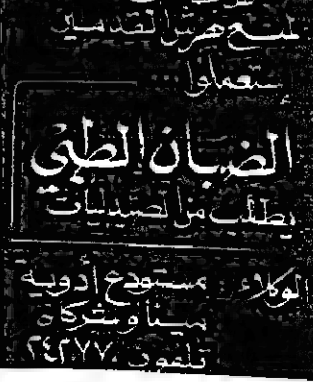 لمنع هرش القدمين
إستعملوا
الضبان الطبي
يطلب من الصيدليات
الوكلاء : مستودع أدوية
مينا وشركاه
تلفون ٢٤٢٧٧